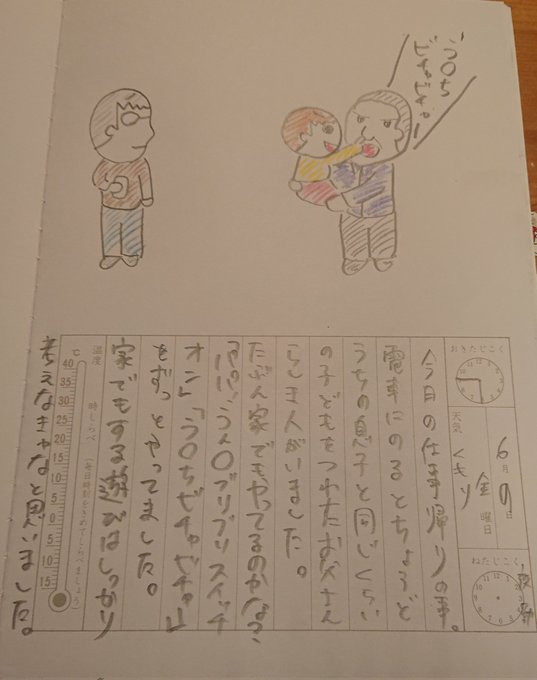 う〇ち
ビチャビチャー
おきたじこく
6月9日
金曜日
天気 くもり
ねたじこく
夜勤
今日の仕事帰りの事。
電車にのるとちょうど
うちの息子と同じくらい
の子どもをつれたお父さん
らしき人がいました。
たぶん家でもやってるのかな?
「パパ、うん〇ブリブリスイッチ
オン」「う〇ちビチャビチャ」
をずっとやってました。
家でもする遊びはしっかり
温度 時しらべ (毎日時刻をきめてしらべましょう)
℃ 40 35 30 25 20 15 10 5 0 5 10 15
考えなきゃなと思いました。